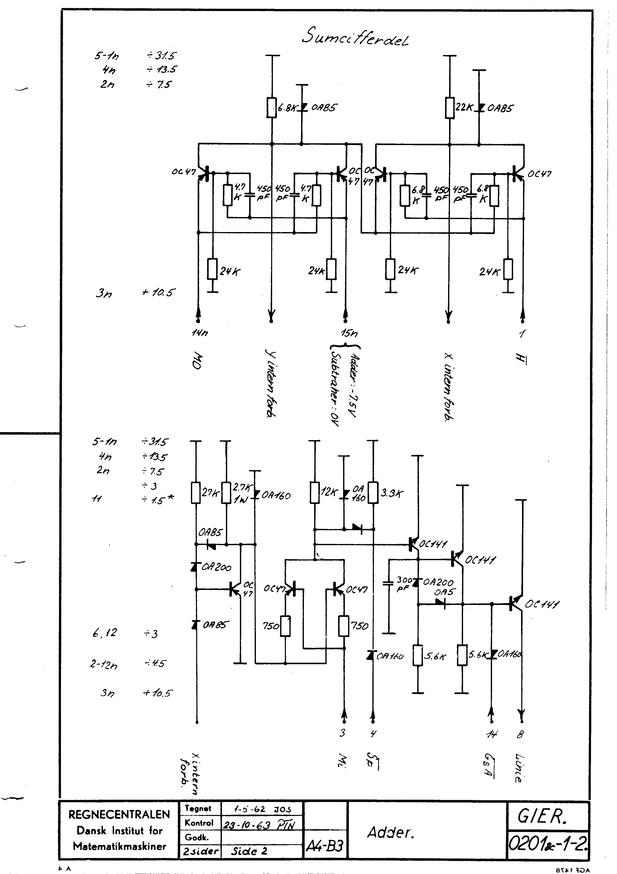 Sumcifferdel
5-1n ÷31.5
4n ÷13.5
2n ÷7.5
6.8K OA85
22K OA85
OC47
4.7 K
450 pF
450 pF
4.7 K
OC 47
OC 47
6.8 K
450 pF
450 pF
6.8 K
OC47
24K
24K
24K
24K
3n +10.5
14n
15n
1
MD
Y internforb.
Adder: -7.5V
Subtraher: 0V
X internforb.
H
5-1n ÷31.5
4n ÷13.5
2n ÷7.5
÷3
11 ÷1.5*
27K
2.7K 1W
OA160
12K
OA 160
3.3K
OA85
OC141
OC141
OA200
OC 47
OC47
OC47
300 pF
OA200
OA5
OC141
OA85
750
750
6,12 ÷3
2-12n ÷4.5
3n +10.5
OA160
5.6K
5.6K
OA160
3
4
14
8
X intern forb.
Mi
GsA
Linie
REGNECENTRALEN
Dansk Institut for
Matematikmaskiner
Tegnet 1-5-62 JOS
Kontrol 23-10-63 PTN
Godk.
2sider Side 2
A4-B3
Adder.
GIER.
A 4
AGF 1478